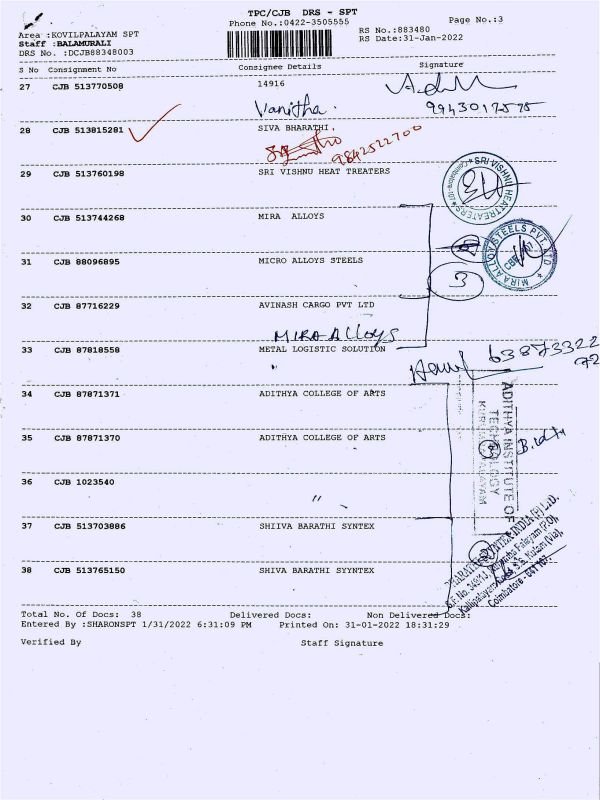 TPC/CJB DRS - SPT
Phone No.:0422-3505555
Page No.:3
Area :KOVILPALAYAM SPT
RS No.:883480
Staff :BALAMURALI
RS Date:31-Jan-2022
DRS No. :DCJB88348003
S No Consignment No Consignee Details Signature
27 CJB 513770508 14916
Vanitha.
28 CJB 513815281 SIVA BHARATHI.
9842522700
29 CJB 513760198 SRI VISHNU HEAT TREATERS
SRI VISHNU HEAT TREATERS
30 CJB 513744268 MIRA ALLOYS
MIRA ALLOY STEELS PVT. LTD
31 CJB 88096895 MICRO ALLOYS STEELS
3
32 CJB 87716229 AVINASH CARGO PVT LTD
MIRA Alloys
33 CJB 87818558 METAL LOGISTIC SOLUTION
"
34 CJB 87871371 ADITHYA COLLEGE OF ARTS
ADITHYA INSTITUTE OF
TECHNOLOGY
35 CJB 87871370 ADITHYA COLLEGE OF ARTS
36 CJB 1023540
"
37 CJB 513703886 SHIIVA BARATHI SYNTEX
38 CJB 513765150 SHIVA BARATHI SYYNTEX
Total No. Of Docs: 38 Delivered Docs: Non Delivered Docs:
Entered By :SHARONSPT 1/31/2022 6:31:09 PM Printed On: 31-01-2022 18:31:29
Verified By Staff Signature